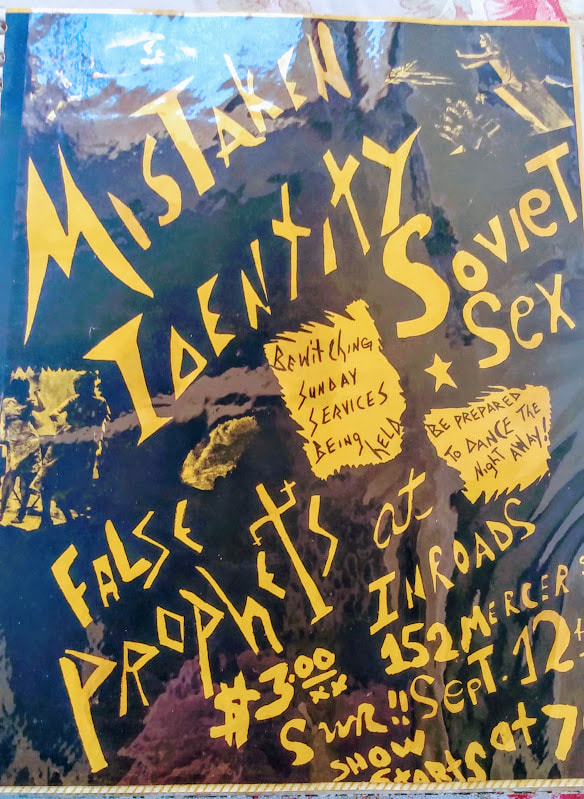 MISTAKEN
IDENTITY
SOVIET
SEX
BEWITCHING
SUNDAY
SERVICES
BEING HELD
BE PREPARED
TO DANCE THE
NIGHT AWAY!
FALSE
PROPHETS
at
INROADS
152 MERCER
$3.00/xx
SEPT. 12th
SHOW
STARTS at 7